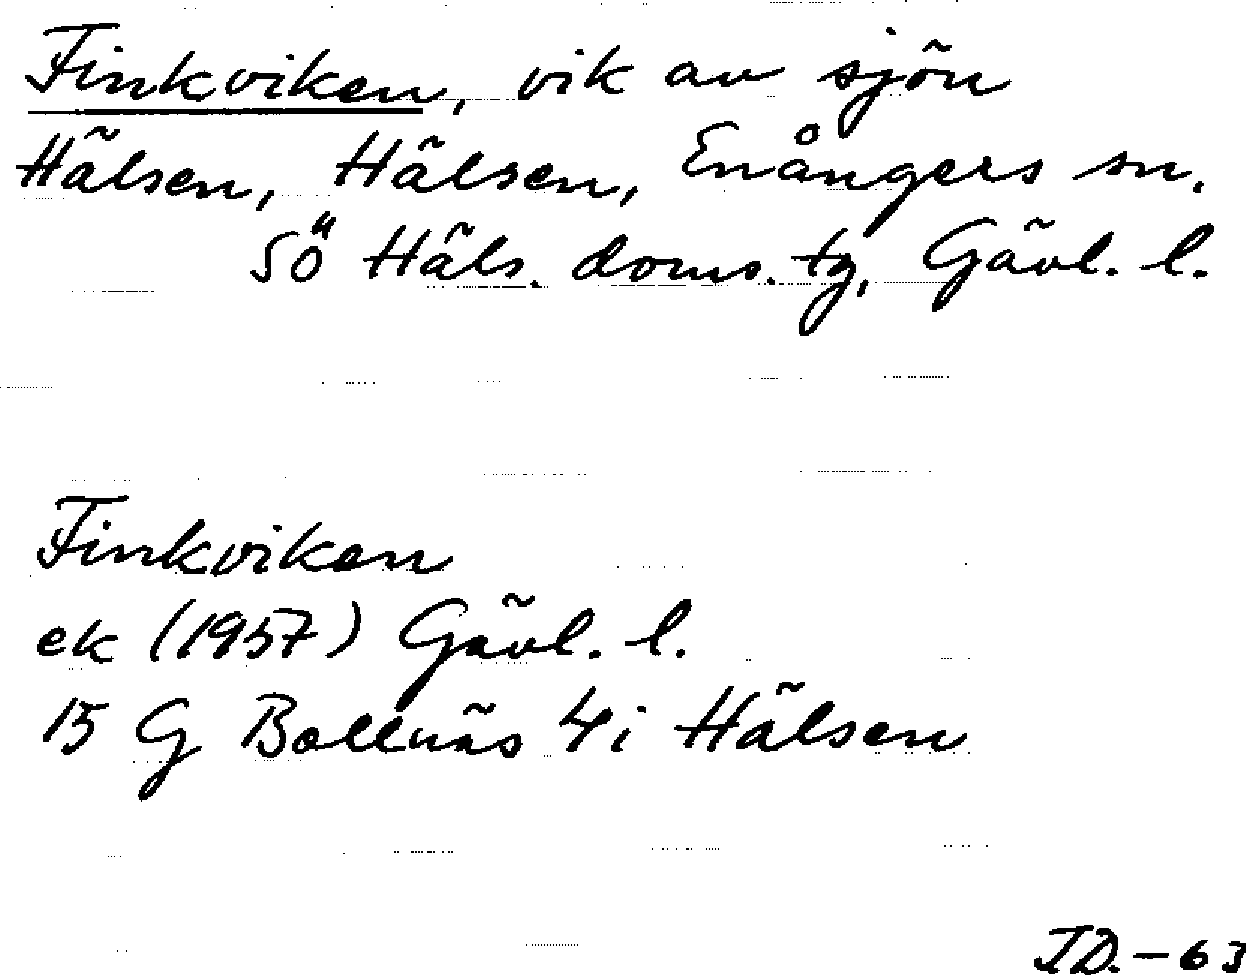 Finkviken, vik av sjön
Hälsen, Hälsen, Enångers sn.
SÖ Häls. doms. tg, Gävl. l.
Finkviken
ek (1957) Gävl. l.
15 G Bollnäs 4i Hälsen
ID.-63